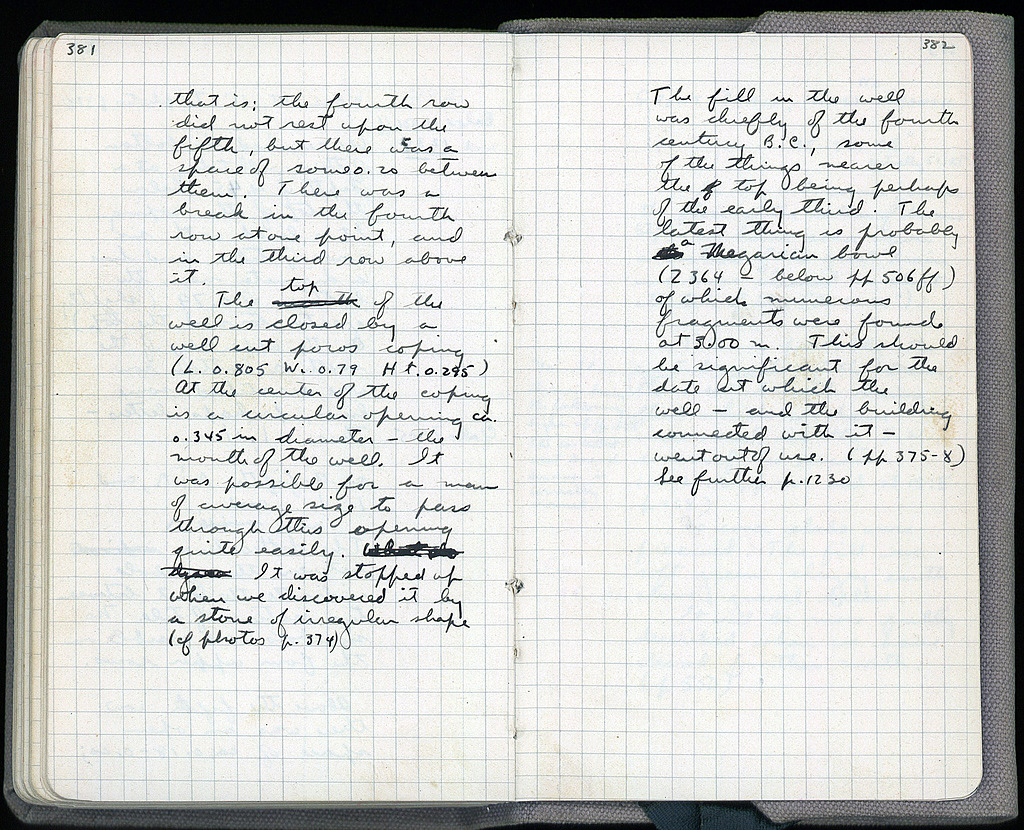 381
that is: the fourth row
did not rest upon the
fifth, but there was a
space of some 0.20 between
them. There was a
break in the fourth
row at one point, and
in the third row above
it.
The top of the
well is closed by a
well cut poros coping
(L. 0.805 W. 0.79 Ht. 0.295)
At the center of the coping
is a circular opening ca.
0.345 in diameter – the
mouth of the well. It
was possible for a man
of average size to pass
through this opening
quite easily.
It was stopped up
when we discovered it by
a stone of irregular shape
(cf photos p. 374)
382
The fill in the well
was chiefly of the fourth
century B.C., some
of the things nearer
the top being perhaps
of the early third. The
latest thing is probably
a Megarian bowl
(2364 – below pp 506ff)
of which numerous
fragments were found
at 3.00 m. This should
be significant for the
date at which the
well – and the building
connected with it –
went out of use. (pp 375-8)
See further p. 1230